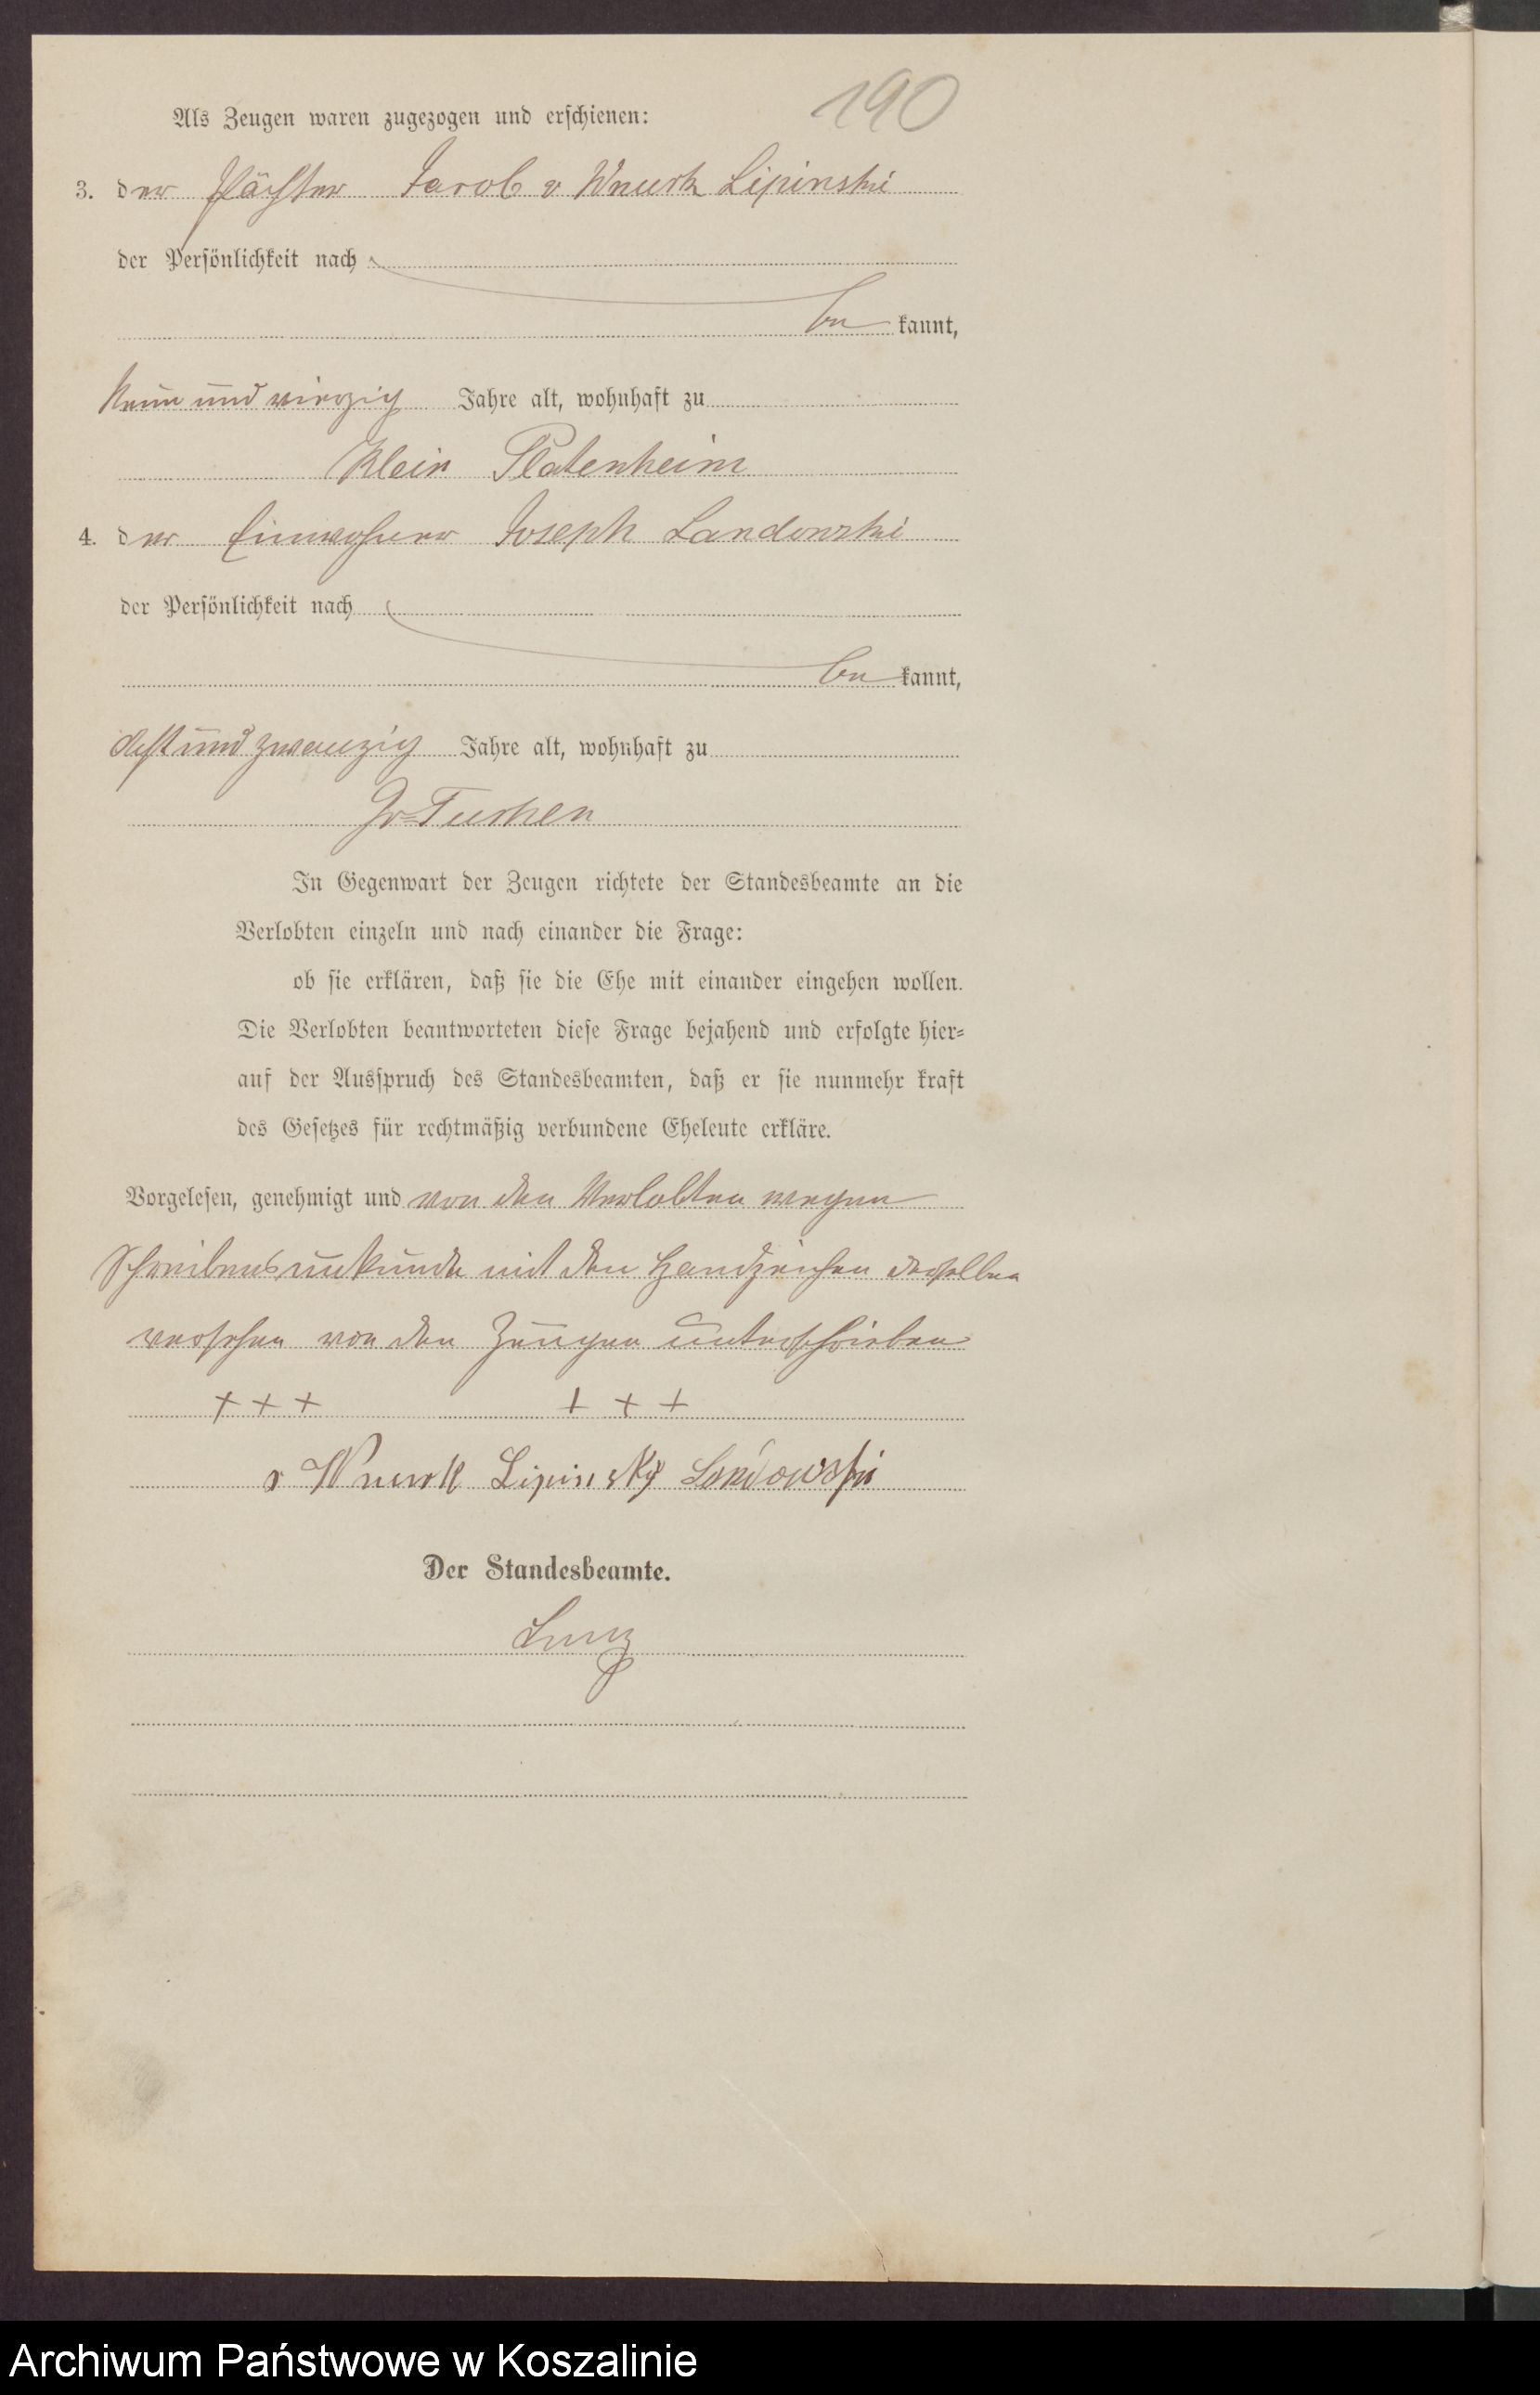 190
Als Zeugen waren zugezogen und erschienen:
3. der Pächter Jacob v Wnurk Lipinski
der Persönlichkeit nach
be kannt,
Neun und vierzig Jahre alt, wohnhaft zu
Klein Platenheim
4. der Einwohner Joseph Landowski
der Persönlichkeit nach
be kannt,
Acht und zwanzig Jahre alt, wohnhaft zu
Gr=Tuchen
In Gegenwart der Zeugen richtete der Standesbeamte an die
Verlobten einzeln und nach einander die Frage:
ob sie erklären, daß sie die Ehe mit einander eingehen wollen.
Die Verlobten beantworteten diese Frage bejahend und erfolgte hier=
auf der Ausspruch des Standesbeamten, daß er sie nunmehr kraft
des Gesetzes für rechtmäßig verbundene Eheleute erkläre.
Vorgelesen, genehmigt und von den Verlobten wegen
Schreibensunkunde mit den Handzeichen derselben
versehen von den Zeugen unterschrieben
+ + + + + +
v Wnurk Lipinsky Landowski
Der Standesbeamte.
Archiwum Państwowe w Koszalinie